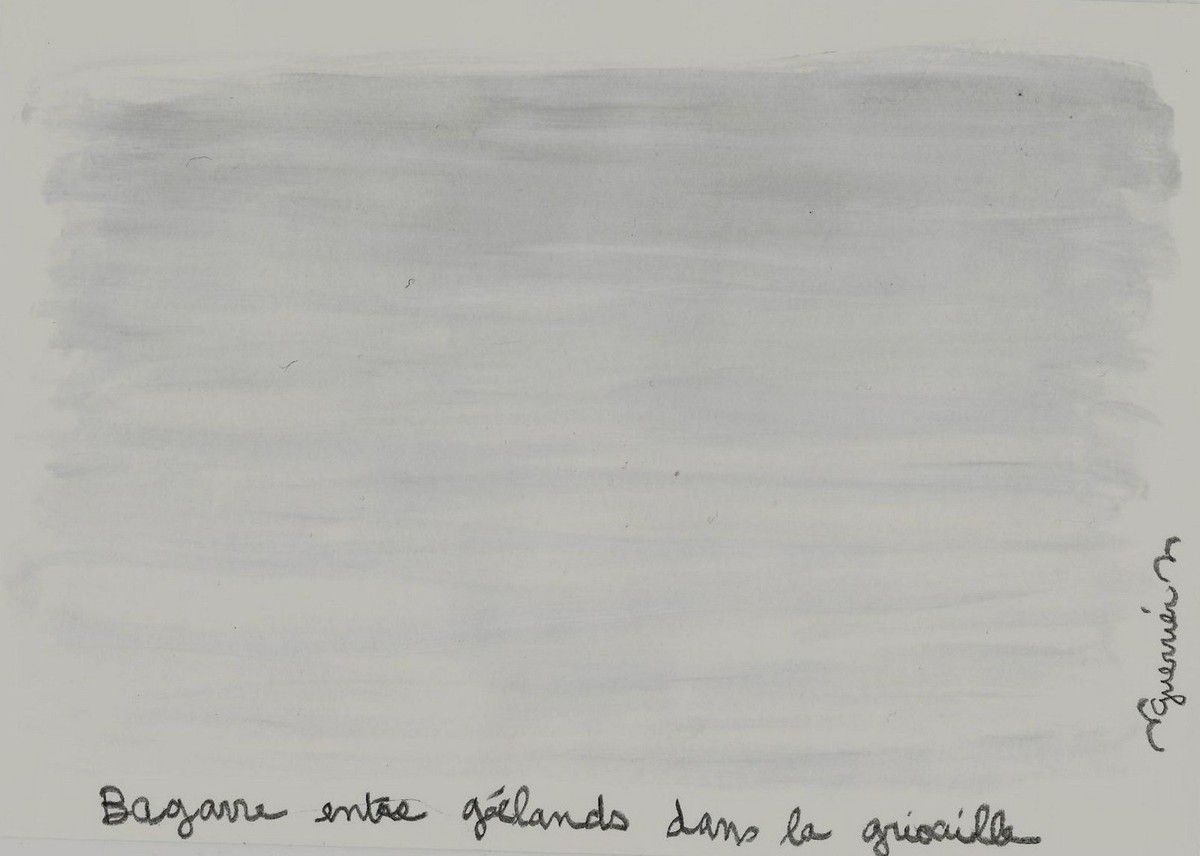 Bagarre entre goélands dans la grisaille
Guerrier